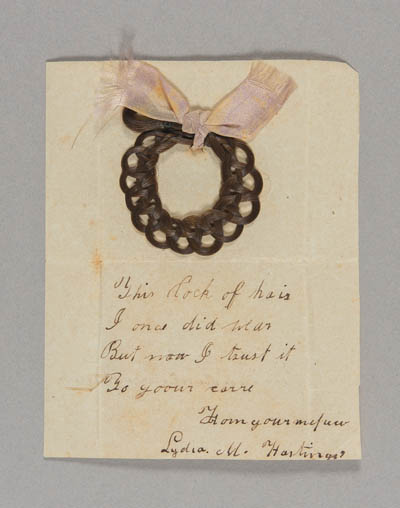 This lock of hair
I once did wear
But now I trust it
To yoour carre
From your
Lydia. M. Hastings